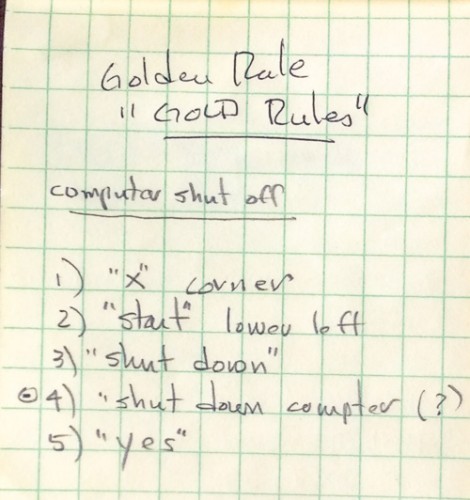 Golden Rule
"GOLD Rules"
computer shut off
1) "x" corner
2) "start" lower left
3) "shut down"
4) "shut down compter (?)
5) "yes"